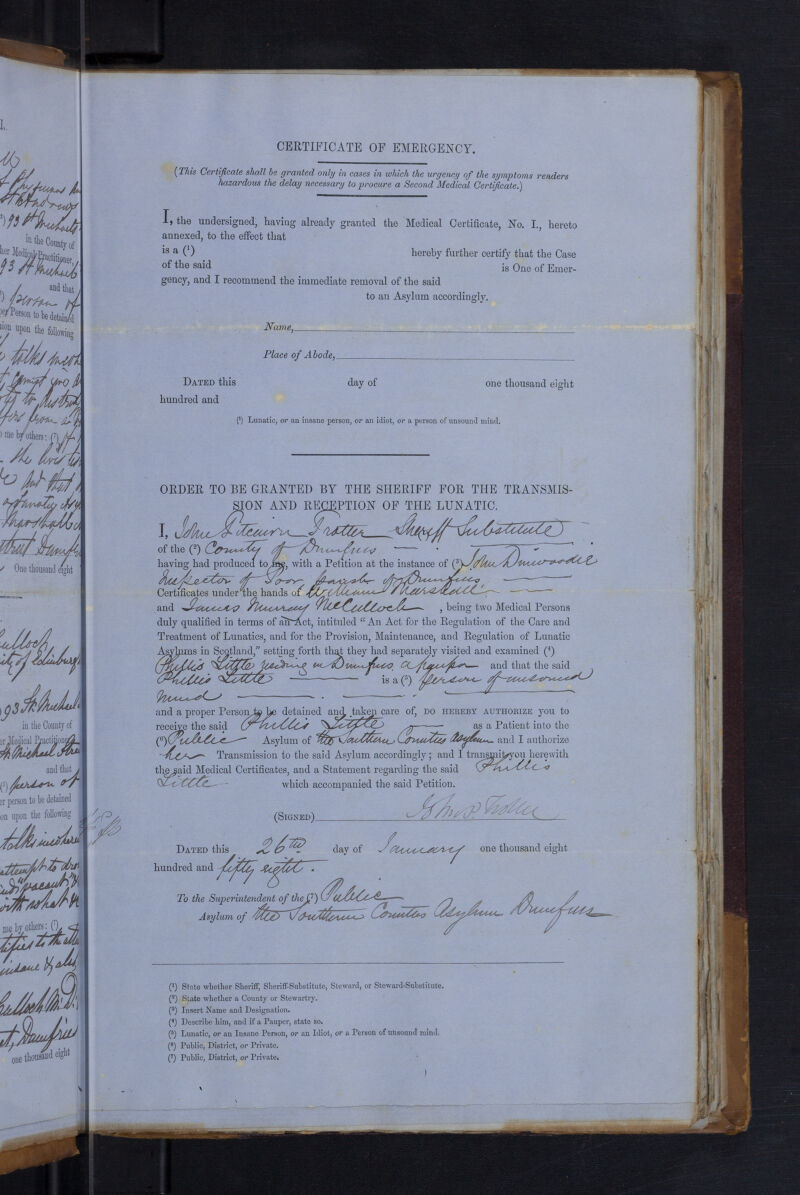 CERTIFICATE OF EMERGENCY.
(This Certificate shall be granted only in cases in which the urgency of the symptoms renders
hazardous the delay necessary to procure a Second Medical Certificate.)
I, the undersigned, having already granted the Medical Certificate, No. I., hereto
annexed, to the effect that
is a (¹) hereby further certify that the Case
of the said is One of Emer-
gency, and I recommend the immediate removal of the said
to an Asylum accordingly.
Name,
Place of Abode,
DATED this day of one thousand eight
hundred and
(¹) Lunatic, or an insane person, or an idiot, or a person of unsound mind.
ORDER TO BE GRANTED BY THE SHERIFF FOR THE TRANSMIS-
SION AND RECEPTION OF THE LUNATIC.
I, John Pitcairn Trotter Sheriff Substitute
of the (²) County of Dumfries
having had produced to me, with a Petition at the instance of (³) John Dinwoodie
Inspector of Poor, parish of Dumfries
Certificates under the hands of William Marshall
and James Murray McCulloch, being two Medical Persons
duly qualified in terms of an Act, intituled "An Act for the Regulation of the Care and
Treatment of Lunatics, and for the Provision, Maintenance, and Regulation of Lunatic
Asylums in Scotland," setting forth that they had separately visited and examined (⁴)
Phillis Little residing in Dumfries a pauper and that the said
Phillis Little is a (⁵) person of unsound
mind
and a proper Person to be detained and taken care of, DO HEREBY AUTHORIZE you to
receive the said Phillis Little as a Patient into the
(⁶) Public Asylum of the Southern Counties Asylum and I authorize
her Transmission to the said Asylum accordingly; and I transmit you herewith
the said Medical Certificates, and a Statement regarding the said Phillis
Little which accompanied the said Petition.
(SIGNED) John P Trotter
DATED this 26th day of January one thousand eight
hundred and fifty eight.
To the Superintendent of the (⁷) Public
Asylum of the Southern Counties Asylum Dumfries
(¹) State whether Sheriff, Sheriff-Substitute, Steward, or Steward-Substitute.
(²) State whether a County or Stewartry.
(³) Insert Name and Designation.
(⁴) Describe him, and if a Pauper, state so.
(⁵) Lunatic, or an Insane Person, or an Idiot, or a Person of unsound mind.
(⁶) Public, District, or Private.
(⁷) Public, District, or Private.
in the County of
and that
Person to be detained
upon the following
me by others:
One thousand eight
93 St Michael
in the County of
Medical Practitioner
and that
person of
er person to be detained
on upon the following
me by others:
one thousand eight